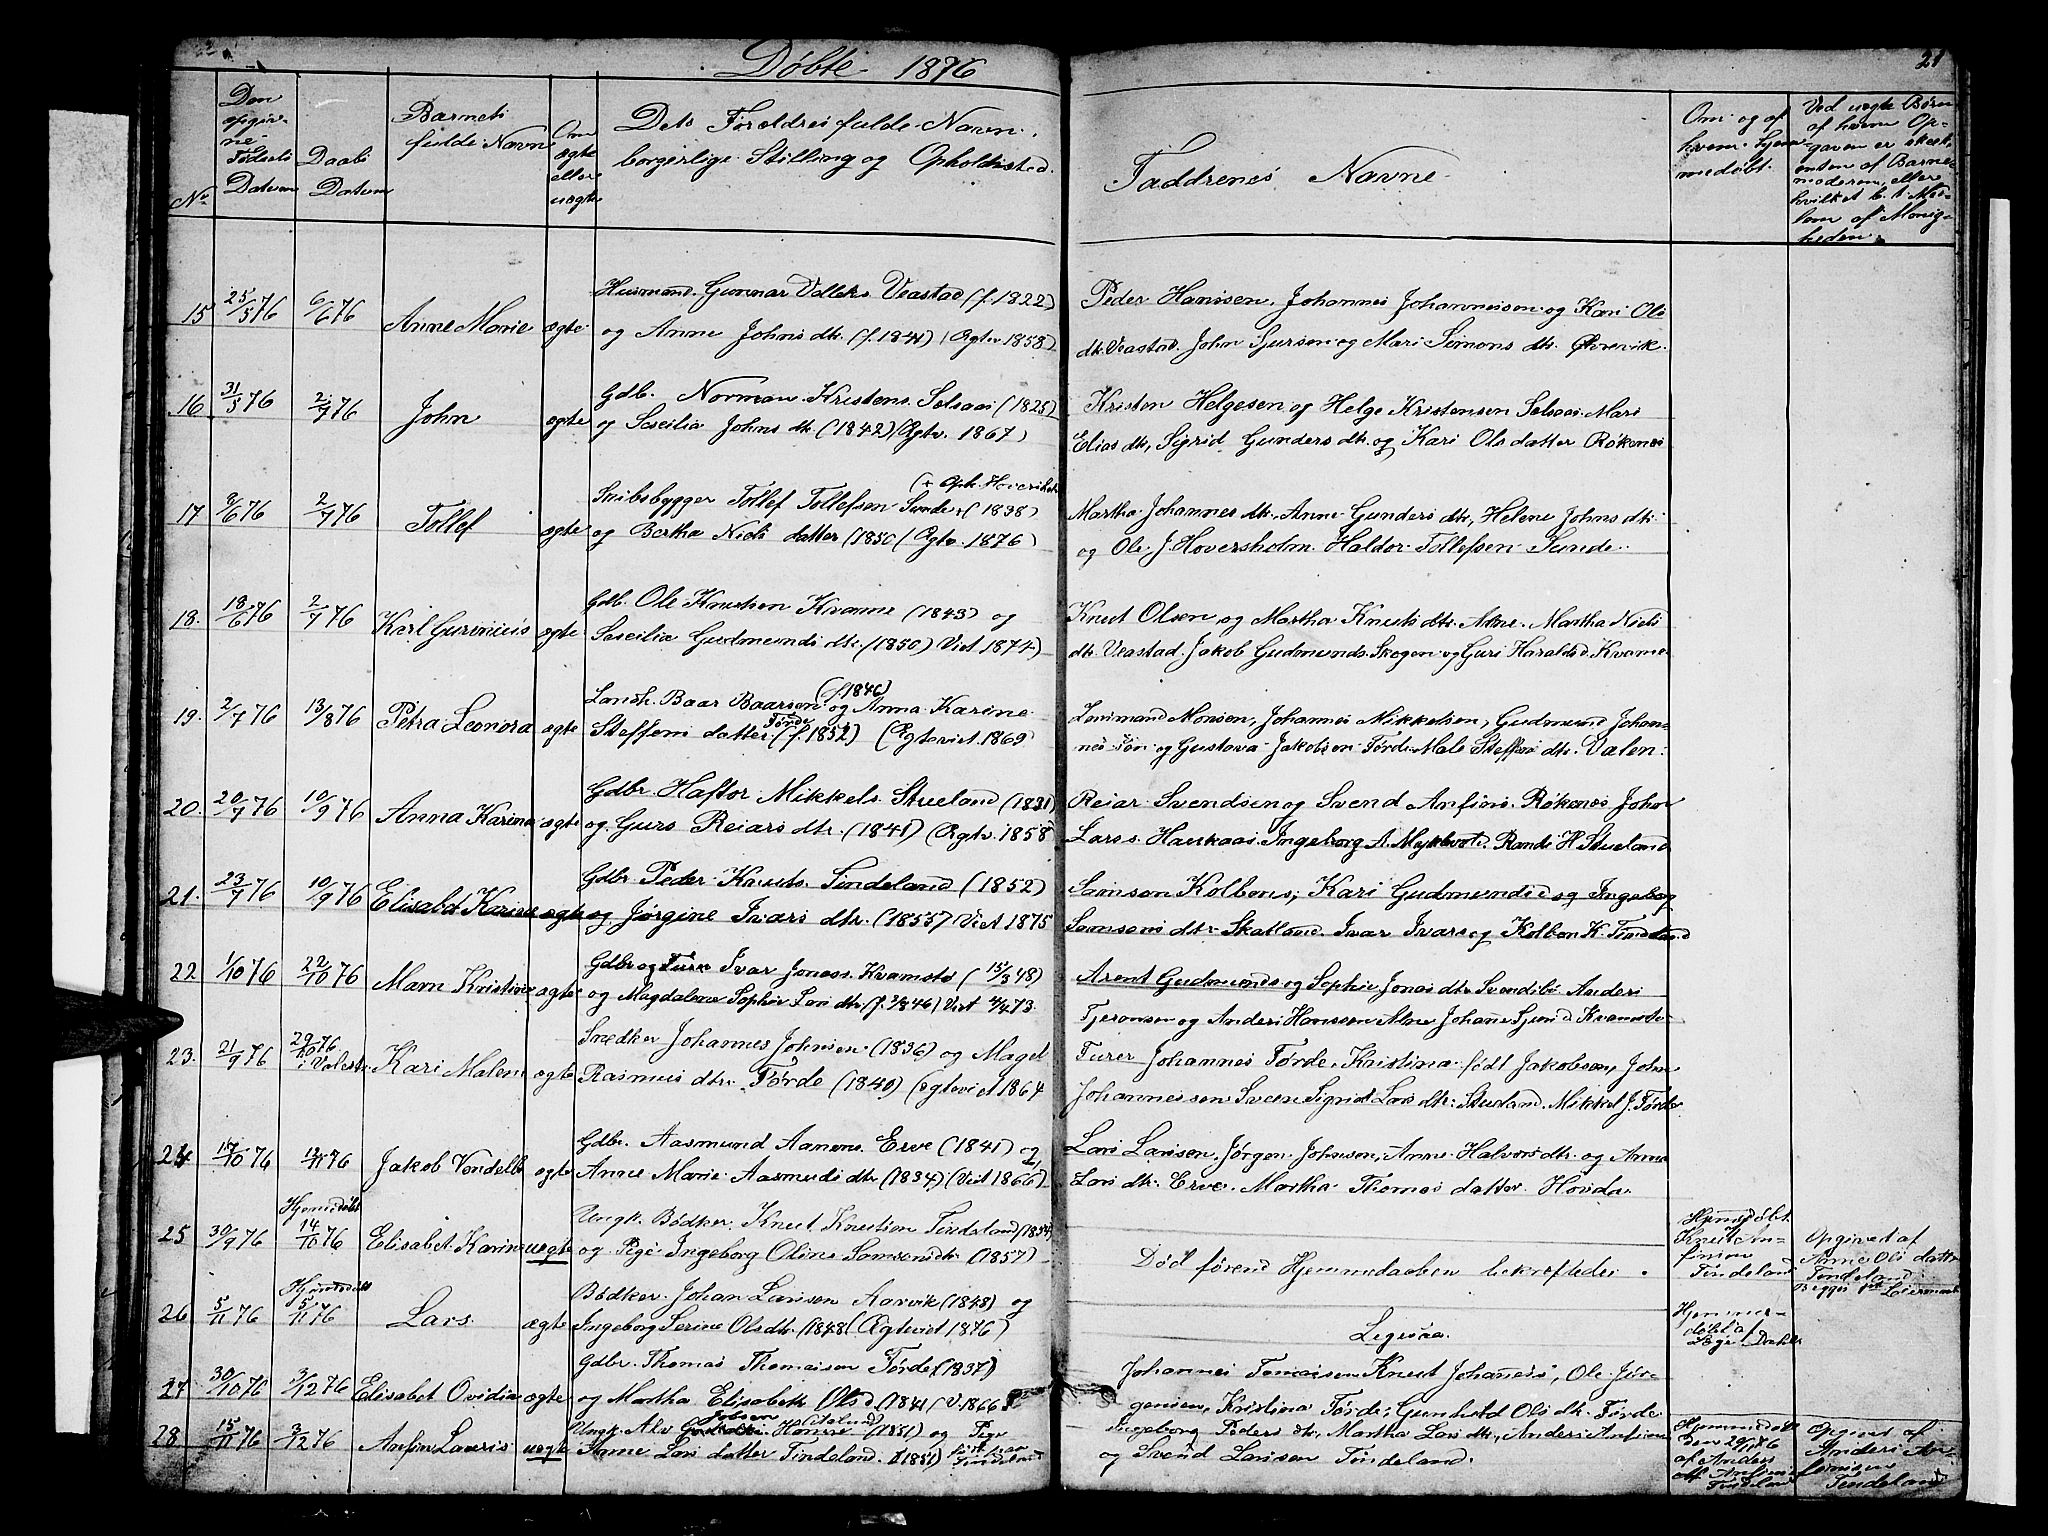 Døbte 1876
21
No
Den opgivne Fødsels Datum
Daabs Datum
Barnets fulde Navne
Om ægte eller uægte
Dets Forældres fulde Navn, borgerlige Stilling og Opholdssted.
Faddrenes Navne.
Om og af hvem hjemmedøbt.
Ved uægte Børn af hvem Opgaven er skeet, enten af Barnemoderen, eller hvilket b. t. Medlem af Menigheden.
15 25/5 76 6/6 76 Anne Marie ægte
Husmand. Gunnar Veastad (f. 1822)
og Anne Johns dtr. (f. 1841) (Ægtev. 1858)
Peder Hansen, Johannes Johannessen og Kari Ols
dtr. Veastad. John og Mari Simons dtr. Økrevik.
16 31/5 76 2/7 76 John ægte
Gdb. Norman Kristens. Solsaas (1825)
og Sæcilia Johns dtr. (1842) (Ægtv. 1867)
Kristen Helgesen og Helge Kristensen Solsaas. Mari
Elias dtr, Sigrid Gunders dtr. og Kari Ols datter Røkenes
17 8/6 76 2/7 76 Tollef ægte
(+ Oph.
Skibsbygger Tollef Tollefsen Sunde + (1838)
og Bertha Niels datter (1850 (Ægtv. 1876)
Martha Johannes dtr., Anne Gunders dtr, Helene Johns dtr.
og Ole J. Hoversholm. Haldor Tollefsen Sunde.
18. 18/6 76 2/7 76 Karl ægte
Gdb. Ole Knutsen Kvame (1843) og
Sæcilia Gudmunds dtr. (1850) Viet 1874)
Knut Olsen og Martha Knuts dtr. Martha Niels
dtr. Veastad. Jakob Gudmunds. Skogen og Guri Haralds d. Kvame
19. 2/7 76 13/8 76 Petra Leonora ægte
(f. 1846)
Baar Baarsen og Anna Karine
Steffens datter Førde (f. 1852) (Ægteviet. 1869)
Monsen, Johannes Mikkelsen, Gudmund Johan-
nes søn og Gustava Jakobsen Førde. Male Steffens dtr. Valen.
20. 20/7 76 10/9 76 Anna Karina ægte
Gdbr. Haftor Mikkels. Stueland (1831)
og Guro Reiars dtr. (1841) (Ægtv. 1858)
Reiar Svendsen og Svend Anfins. Røkenes John
Lars s. Haukaas. Ingeborg A. Randi H. Stueland
21. 23/7 76 10/9 76 Elisabet Karine ægte
Gdbr. Peder Knuts. Tindeland (1852)
og Jørgine Ivars dtr. (1855) Viet 1875
Samson Kolbens; Kari Gudmunds d og Ingeborg
Samsons dtr. Skatland. Ivar Ivars og Kolben K. Tindeland
22. 1/10 76 22/10 76 Maren Kristine ægte
Gdbr og Ivar Jonass. Kvamsto (15/3 48)
og Magdalena Sophie Lars dtr. Viet 73.
Arent Gudmunds og Sophie Jonas dtr. Svendsbø. Anders
og Anders Hanssen Kvamsto.
23. 21/9 76 29/10 76 i Kari Malene ægte
Snedker Johannes Johnsen (1836) og Magel
Rasmus dtr. Førde (1840) (Ægteviet 1864
Johannes Førde, Kristina født Jakobsen, John
Johannessen Sveen Sigrid Lars dtr. Stueland. Mikkel J. Førde
24 /10 76 12/11 76 Jakob Vendelbo ægte
Gdbr. Aasmund Aanens. Erve (1841) og
Anne Marie Aasmunds dtr (1834) (Viet 1866)
Lars Larsen, Jørgen Johnsen, Anne Halvors dtr. og Anna
Lars dtr. Erve. Martha Thomas datter Hovda.
25 30/9 76 Hjemdøbt 14/10 76 Elisabet Karine uægte
Ungk. Bødker. Knut Knutsen Tindeland (1854)
og Pige Ingeborg Oline Samsons dtr. (1857)
Død førend Hjemmedaaben bekræftedes.
Hjemdøbt Knut Anfinsen Tindeland
Opgivet af Anne Ols datter Tindeland. Begges Leiermaal
26 5/11 76 Hjemdøbt 5/11 76 Lars. ægte
Bødker. Johan Larsen Aarvik (1848) og
Ingeborg Serine Ols dtr. (1848 (Ægteviet 1876)
Ligesaa.
Hjemmedøbt af Læge Dahl
27 30/10 76 3/12 76 Elisabet Ovidia ægte
Gdbr. Thomas Thomassen Førde (1837)
og Martha Elisabeth Ols d. (1841 (V. 1866)
Johannes Tomassen Knut Johaness, Ole Jør-
gensen, Kristina Førde, Gunhild Ols dtr. Førde
28 15/11 76 3/12 76 Anfin Lauris uægte
Ungk. Alv Jobsen (1851) og Pige
Anne Lars datter Tindeland. (1851)
Ingeborg Peders dtr, Martha Lars dtr., Anders Anfinsen
og Svend Larsen Tindeland.
Hjemmedøbt den 20/11 76 af Anders Anfinsen Tindeland
Opgivet af Anders Anfinsen Tindeland